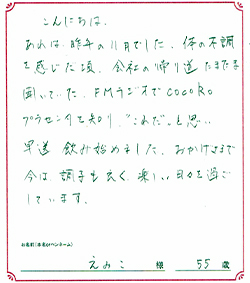 こんにちは。
あれは、昨年の11月でした。体の不調
を感じた頃、会社の帰り道たまたま
聞いていた、FMラジオでCOCORO
プラセンタを知り、"これだ"と思い
早速 飲み始めました。おかげさまで
今は、調子も良く、楽しい日々を過ご
しています。
お名前(本名orペンネーム)
えみこ 様 55 歳